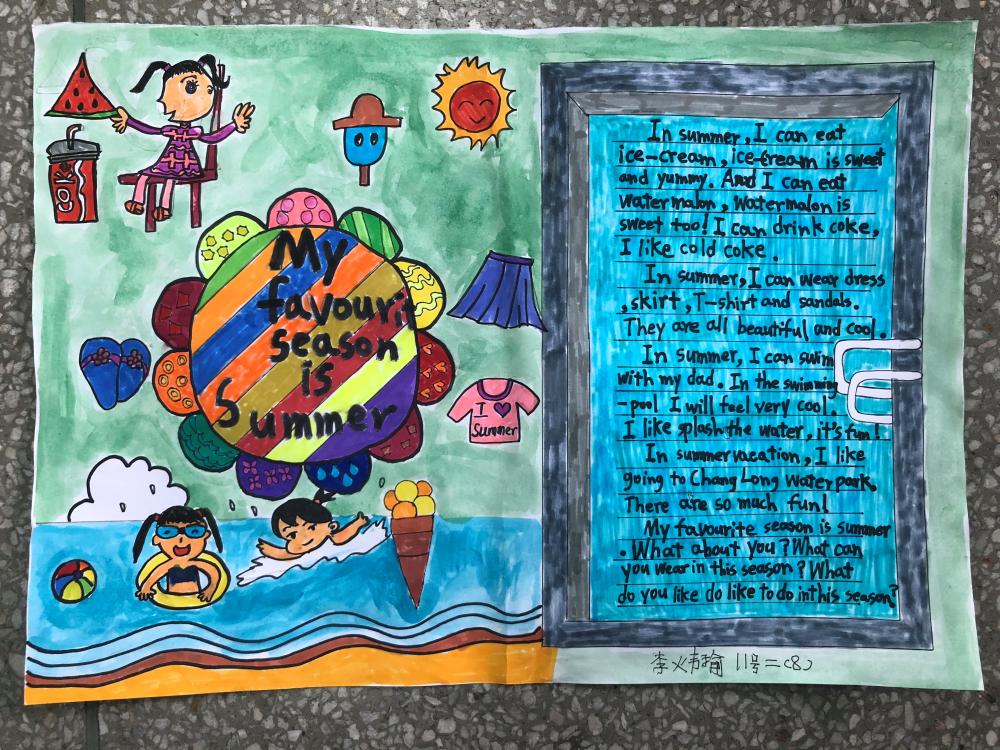 My
favourit
season
is
Summer
I ♥
Summer
In summer, I can eat
ice-cream, ice-cream is sweet
and yummy. And I can eat
watermalon, watermalon is
sweet too! I can drink coke,
I like cold coke.
In summer, I can wear dress
, skirt, T-shirt and sandals.
They are all beautiful and cool.
In summer, I can swim
with my dad. In the swimming
-pool I will feel very cool.
I like splash the water, it's fun!
In summer vacation, I like
going to Chang Long Water park.
There are so much fun!
My favourite season is summer
. What about you? What can
you wear in this season? What
do you like do like to do in this season?
李 11号二(8)